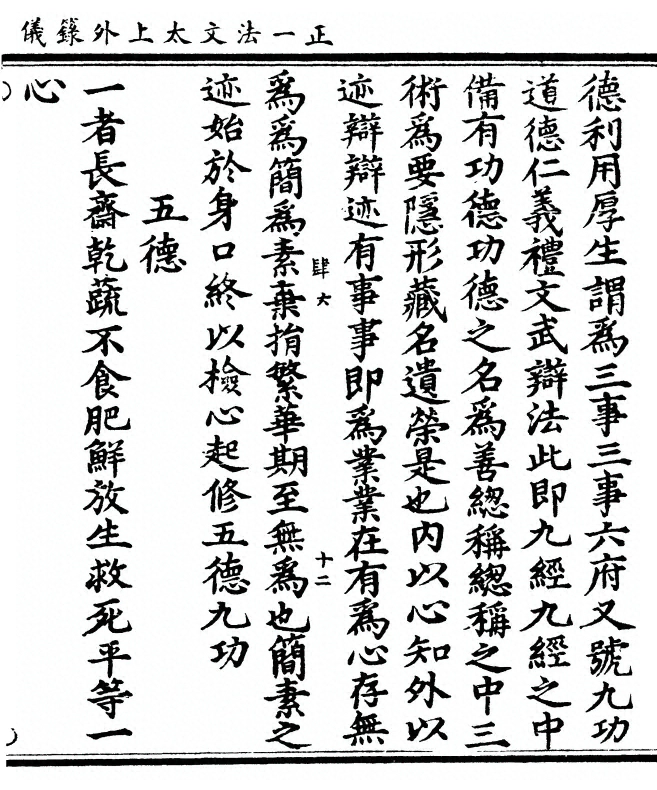 正一法文太上外籙儀
德利用厚生謂為三事三事六府又號九功
道德仁義禮文武辯法此即九經九經之中
備有功德功德之名為善緫稱緫稱之中三
術為要隱形藏名遺榮是也內以心知外以
迹辯辯迹有事事即為業業在有為心存無
肆六
十二
為為簡為素棄捐繁華期至無為也簡素之
迹始於身口終以檢心起修五德九功
五德
一者長齋乾蔬不食肥鮮放生救死平等一
心